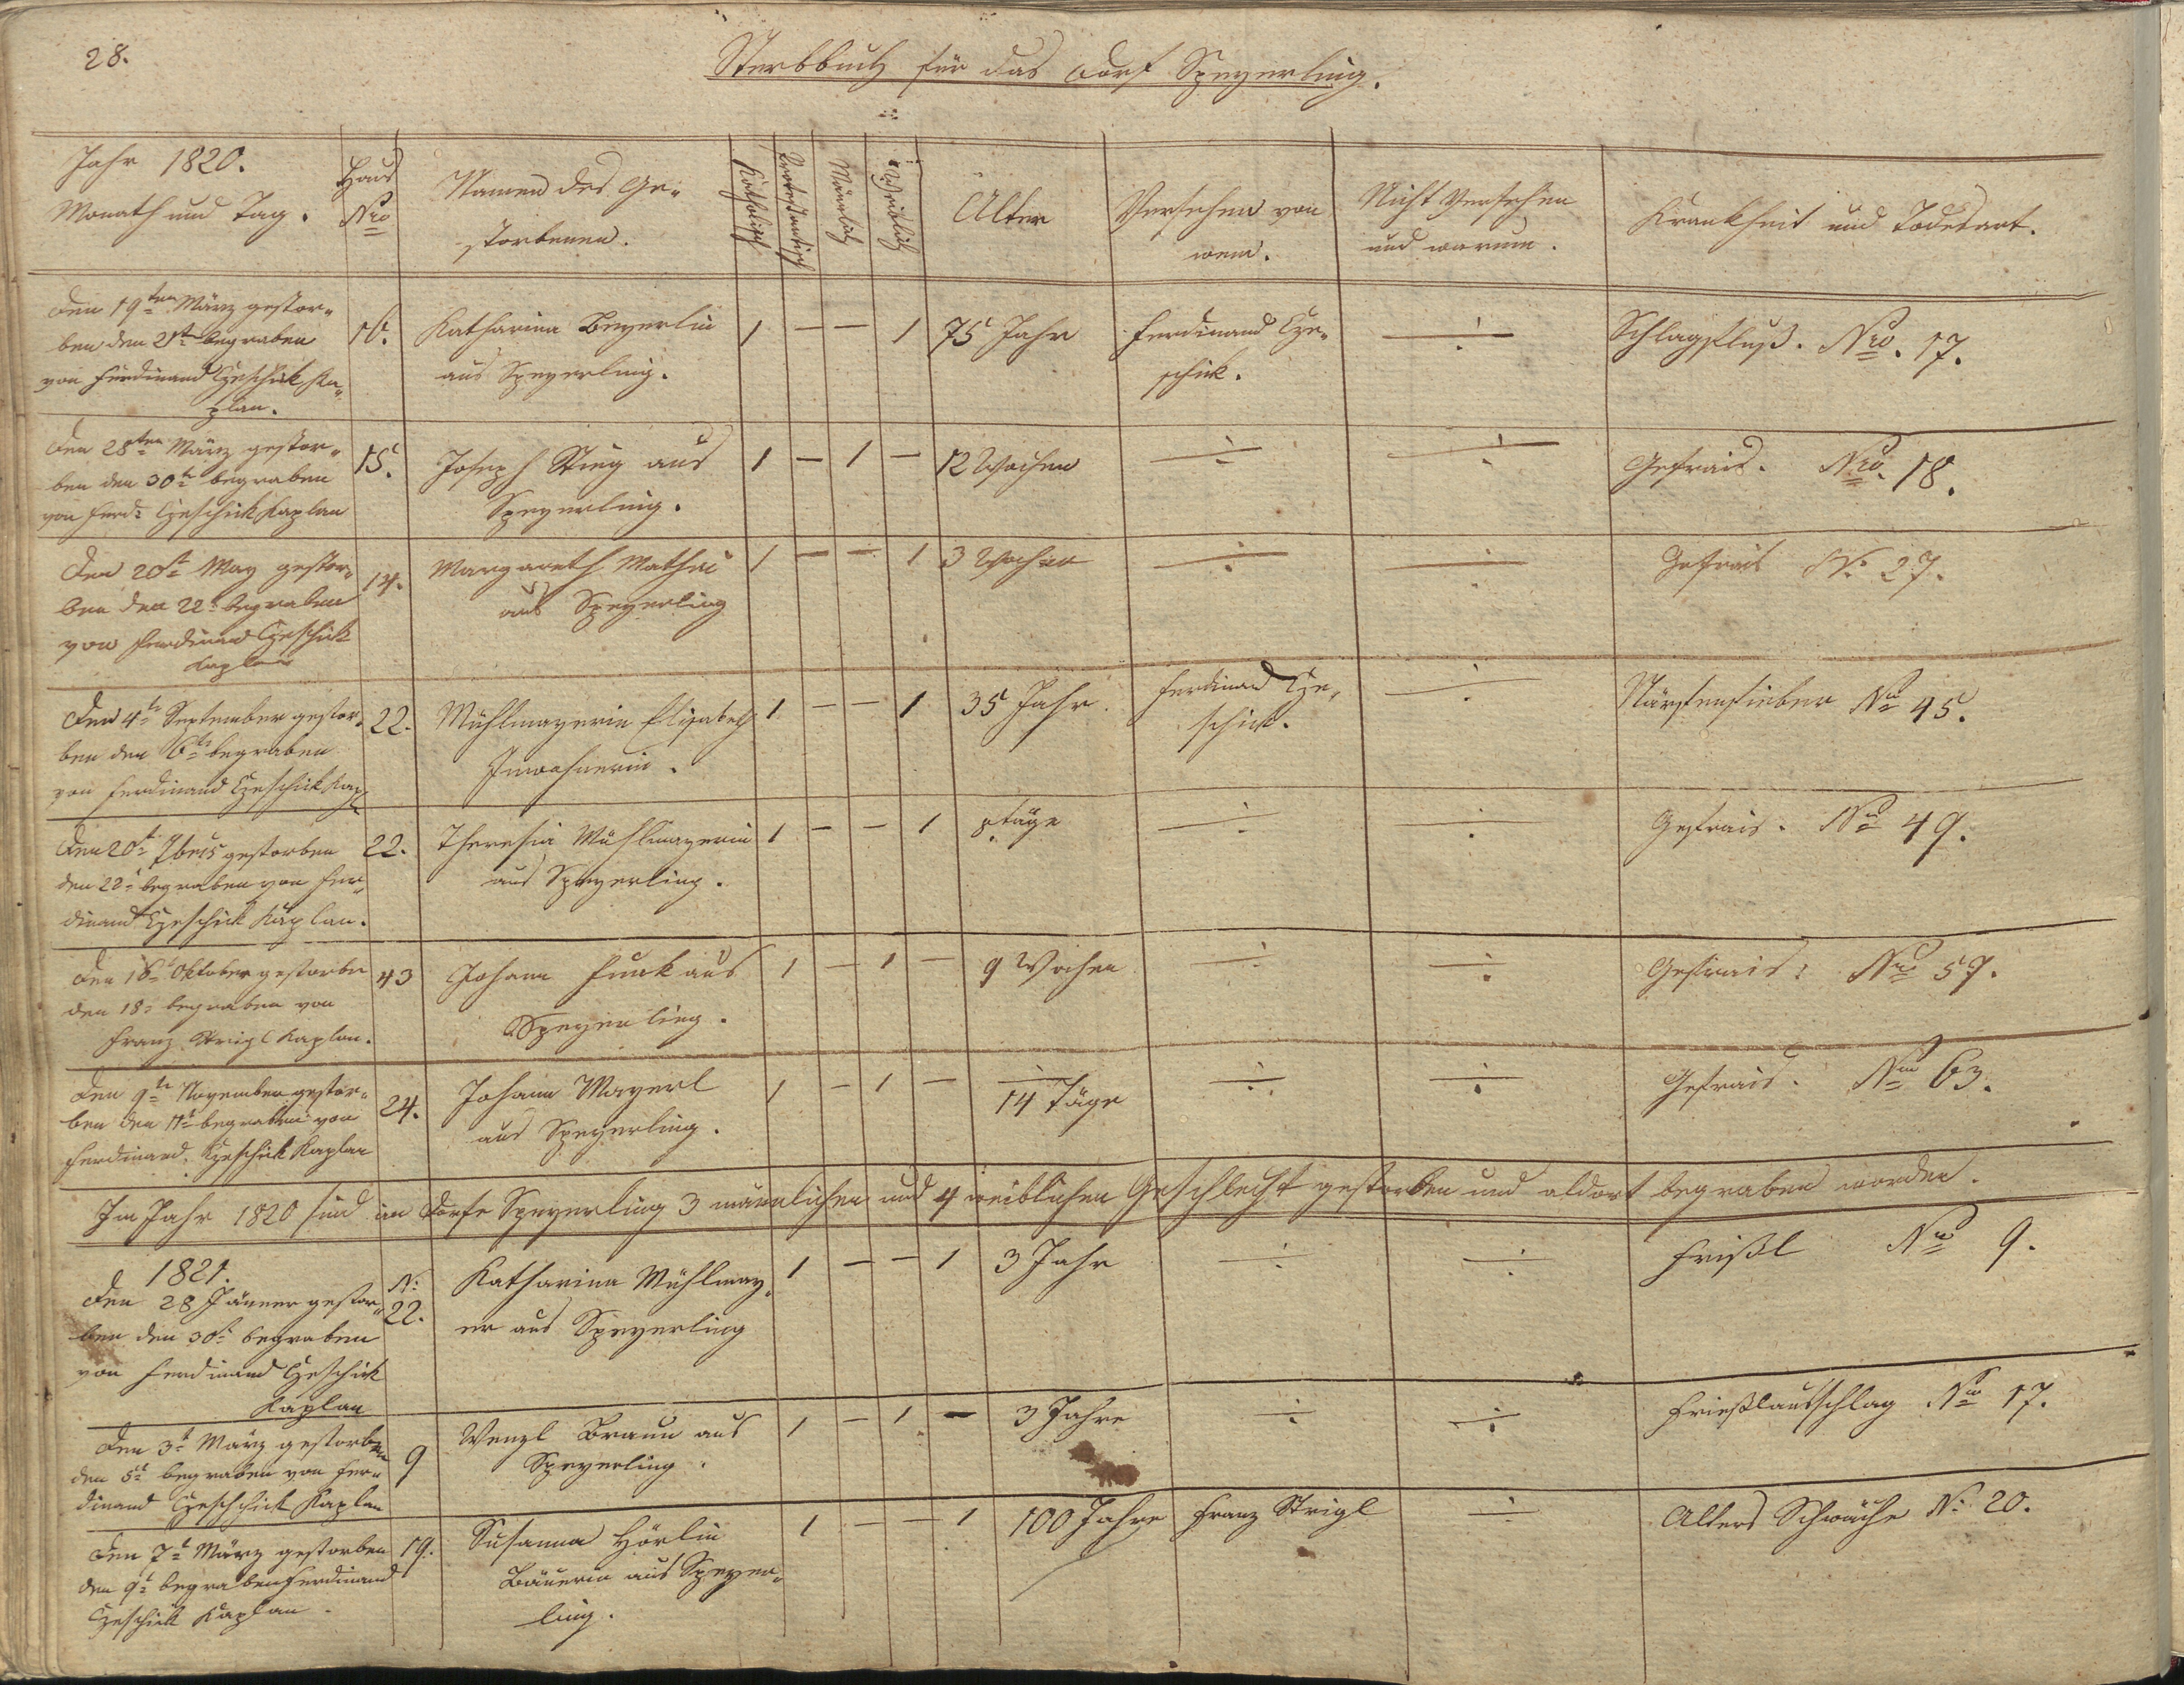 28.
Sterbbuch für das Dorf Speyerling.
Jahr 1820.
Monath und Tag.
Haus
Nro
Namen des Ge-
storbenen.
Katholisch
Protestantisch
Männlich
Weiblich
Alter
Versehen von
wem.
Nicht Versehen
und warum.
Krankheit und Todesart.
Den 19ten März gestor-
ben den 21t begraben
von Ferdinand Czeschik Ka-
plan.
Katharina Beyerlin
aus Speyerling.
1 — — 1
75 Jahr
Ferdinand Cze-
schik.
Schlagfluß. Nro. 17.
Den 28ten März gestor-
ben den 30t begraben
von Ferd: Czeschik Kaplan
15.
Joseph Stieg aus
Speyerling.
1 — 1 —
12 Wochen
Gefrais. Nro. 18.
Den 20t May gestor-
ben den 22t begraben
von Ferdinand Czeschik
Kaplan
14.
Margareth Mathei
aus Speyerling
1 — — 1
3 Wochen
Gefrais N: 27.
Den 4t September gestor-
ben den 6t begraben
von Ferdinand Czeschik Kapl
22.
Mühlmayerin Elisabeth
Inwohnerin.
1 — — 1
35 Jahr
Ferdinand Cze-
schik.
Nro 45.
Den 20t 7beis gestorben
den 22t begraben von Fer-
dinand Czeschik Kaplan.
22.
Theresia Mühlmayerin
aus Speyerling.
1 — — 1
8 täge
Gefrais. Nro 49.
Den 16t Oktober gestorben
den 18t begraben von
Franz Strigl Kaplan.
43
Johann Funk aus
Speyerling.
1 — 1 —
9 Wochen
Gefrais: Nro 57.
Den 9t November gestor-
ben den 11t begraben von
Ferdinand Czeschik Kaplan
24.
Johann Mayerl
aus Speyerling.
1 — 1 —
14 Täge
Gefrais. Nro 63.
Im Jahr 1820 sind im Dorfe Speyerling 3 männlichen und 4 weiblichen Geschlecht gestorben und aldort begraben worden.
1821.
Den 28 Jänner gestor-
ben den 30t begraben
von Ferdinand Czeschik
Kaplan
N:
22.
Katharina Mühlmay-
er aus Speyerling
1 — — 1
3 Jahr
Frißl Nro 9.
Den 3t März gestorben
den 5t begraben von Fer-
dinand Czeschik Kaplan
9
Wenzl Braun aus
Speyerling.
1 — 1 —
3 Jahre
Frießlausschlag Nro 17.
Den 7t März gestorben
den 9t begraben Ferdinand
Czeschik Kaplan.
19.
Susanna Hörlin
Bäuerin aus Speyer-
ling.
1 — — 1
100 Jahre
Franz Strigl
Alters Schwäche N: 20.